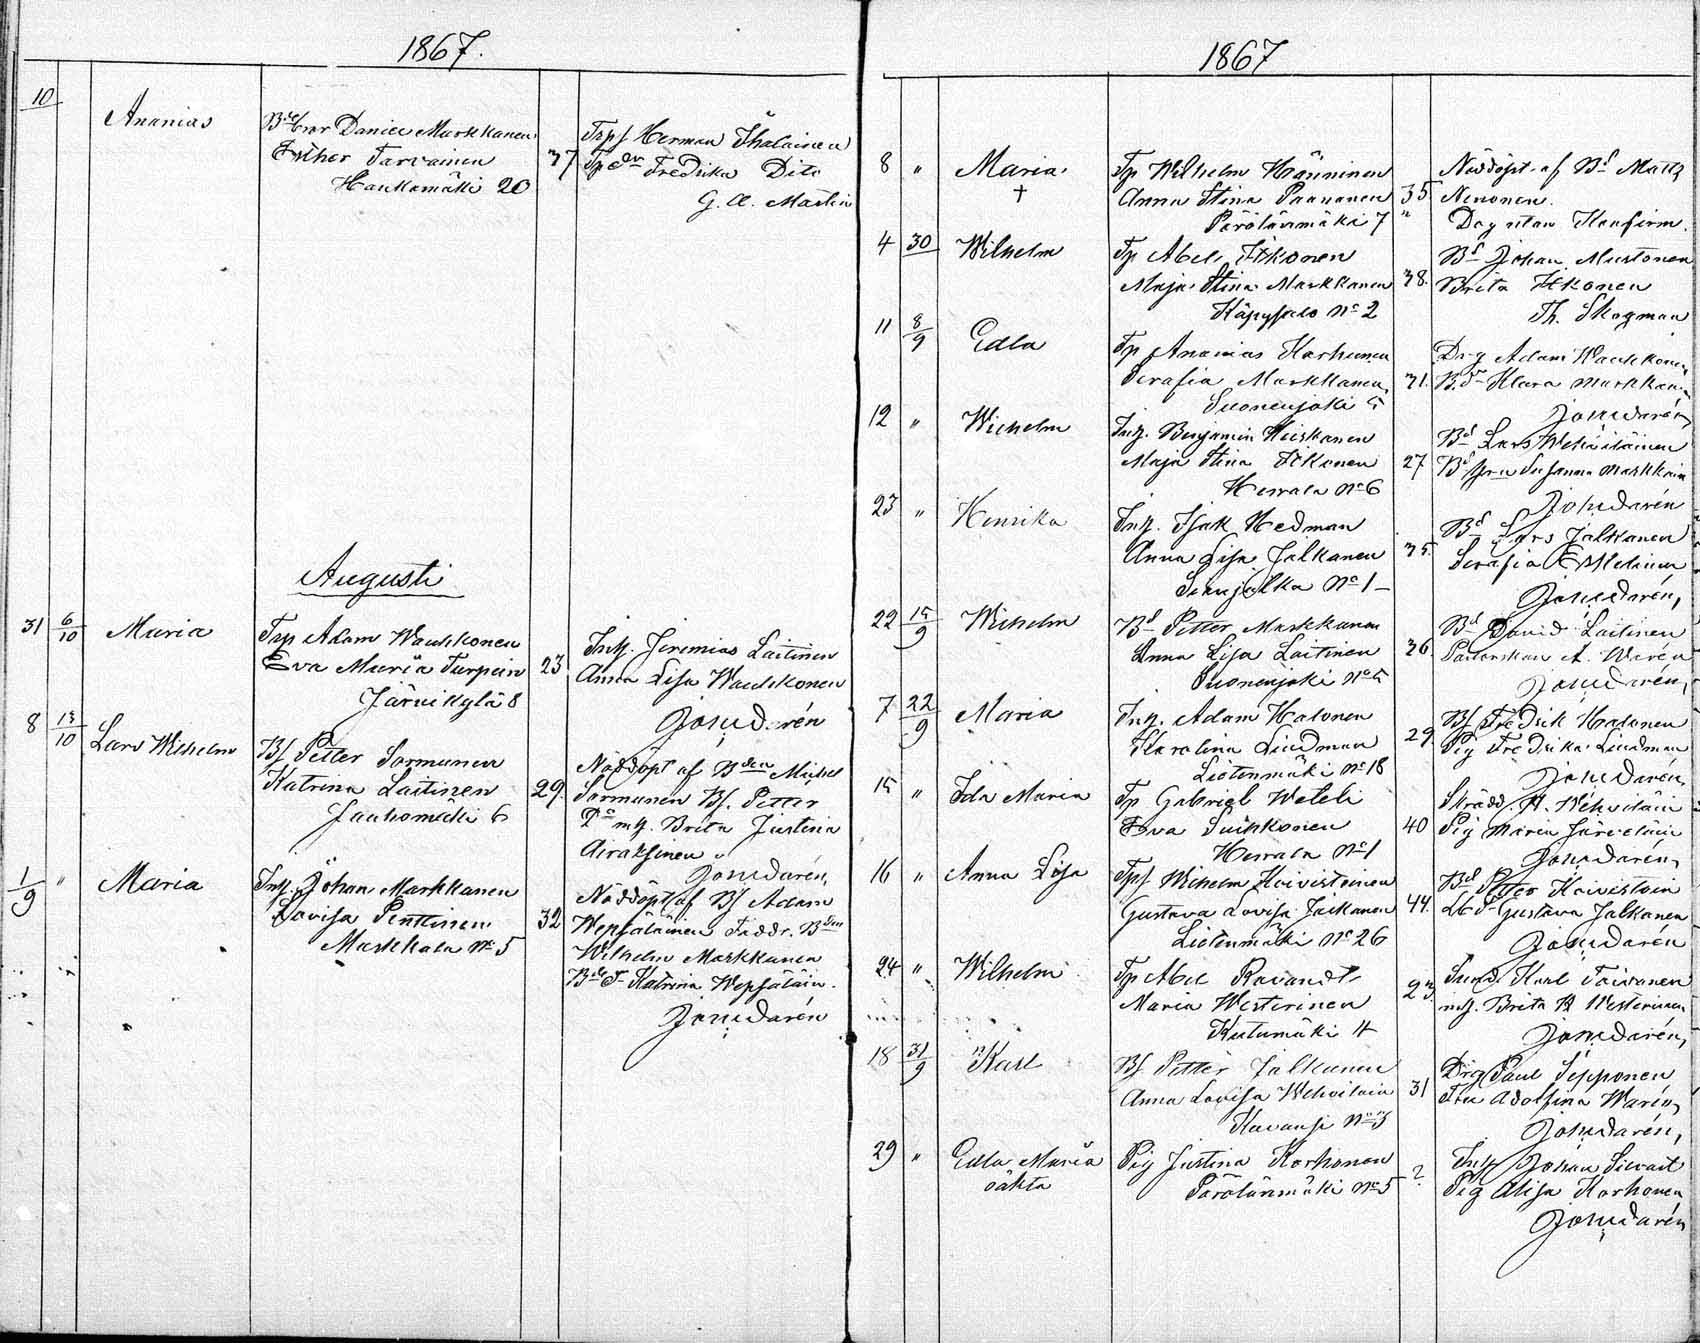 1867.
10
Ananias
Bdebror Daniel Markkanen
Esther Tarvainen 37
Haukamäki 20
Tpsf Herman Ihalainen
Tpdr Fredrika Dito
G. A. Mastin
Augusti
31 6/10 Maria
Tp Adam Wauhkonen
Eva Maria Turpein 23
Järvikylä 8
Inh. Jeremias Laitinen
Anna Lisa Wauhkonen
8 13/10 Lars Wilhelm
Bf Petter Sormunen
Katrina Laitinen 29.
Jauhomäki 6
Nöddöpt af Bden Michel
Sormunen Bf. Petter
Do mh. Brita Justina
Airaksinen
1/9 " Maria
Inh. Johan Markkanen
Lovisa Penttinen 32
Markkala No 5
Nöddöpt af Bf Adam
Wepsäläinen Faddr. Bden
Wilhelm Markkanen
Katrina Wepsäläin.
1867
8 " Maria
†
Tp Wilhelm Hänninen
Anna Stina Paananen 35
Pörölänmäki 7 "
Nöddöpt. af Bd Matts
Nenonen.
Dog utan Konfirm.
4 30 Wilhelm
Tp Abel Itkonen
Maja Stina Markkanen 38.
Käpysalo No 2
Bd Johan Mustonen
Brita Itkonen
Th. Skogman
11 8/9 Edla
Tp Ananias Karhunen
Serafia Markkanen 31.
Suonenjoki 5
Drg Adam Wauhkonen
B.dr Klara Markkan
12 " Wilhelm
Inh. Benjamin Heiskanen
Maja Stina Itkonen 27
Herrala No 6
Bd Lars Wehviläinen
Susanna Markkain
23 " Henrika
Inh. Isak Hedman
Anna Lisa Jalkanen 35.
No 1
Bd Lars Jalkanen
Serafia Eskelinen
22 15/9 Wilhelm
Bd Petter Markkanen
Anna Lisa Laitinen 36.
Suonenjoki No 5
Bd David Laitinen
A. Warén
7 22/9 Maria
Inh. Adam Halonen
Karolina Lindman 29.
Lietenmäki No 18
Bf Fredrik Halonen
Pig Fredrika Lindman
15 " Ida Maria
Tp Gabriel Weteli
Eva Suihkonen 40
Herrala No 1
Skrädd. H. Wehviläin
Pig Maria Järveläin
16 " Anna Lisa
Tpsf Wilhelm Koivistoinen
Gustava Lovisa Jalkanen 44.
Lietenmäki No 26
Bd Petter Koivistoin
Gustava Jalkanen
24 " Wilhelm
Tp Abel Ravandt
Maria Westerinen 23.
Kutumäki 4
Karl Toivanen
mh. Brita Westerinen
18 31/9 Karl
Bf Petter Jalkanen
Anna Lovisa Wehviläin 31
No 3
Drg Paul Sepponen
Adolfina Warén
29 " Edla Maria
oäkta
Pig Justina Korhonen ?
Pörölänmäki No 5
Inh Johan
Pig Alisa Korhonen